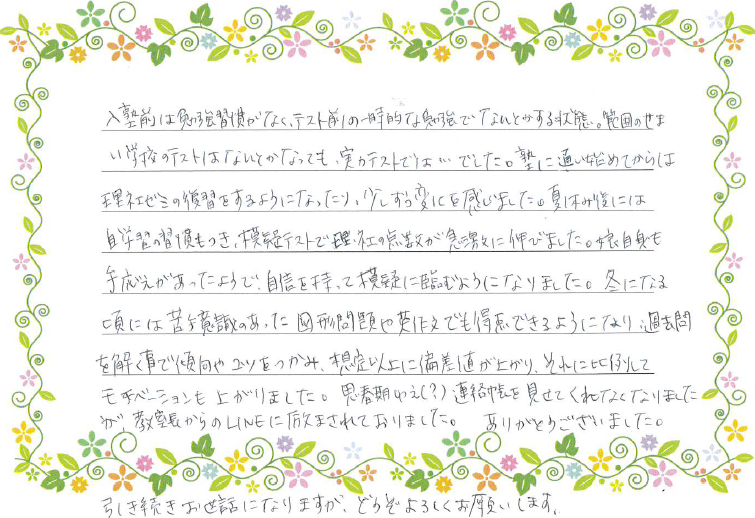 入塾前は勉強習慣がなく、テスト前の一時的な勉強でなんとかする状態。範囲のせま
い学校のテストはなんとかなっても、実力テストでは…でした。塾に通い始めてからは
理社ゼミの復習をするようになったり、少しずつ変化を感じました。夏休み後には
自学習の習慣もつき、模擬テストで理社の点数が急激に伸びました。娘自身も
手応えがあったようで、自信を持って模擬に臨むようになりました。冬になる
頃には苦手意識のあった図形問題や英作文でも得点できるようになり、過去問
を解く事で傾向やコツをつかみ、想定以上に偏差値が上がり、それに比例して
モチベーションも上がりました。思春期ゆえ(?)連絡帳を見せてくれなくなりました
が、教室長からのLINEに励まされておりました。 ありがとうございました。
引き続きお世話になりますが、どうぞよろしくお願いします。